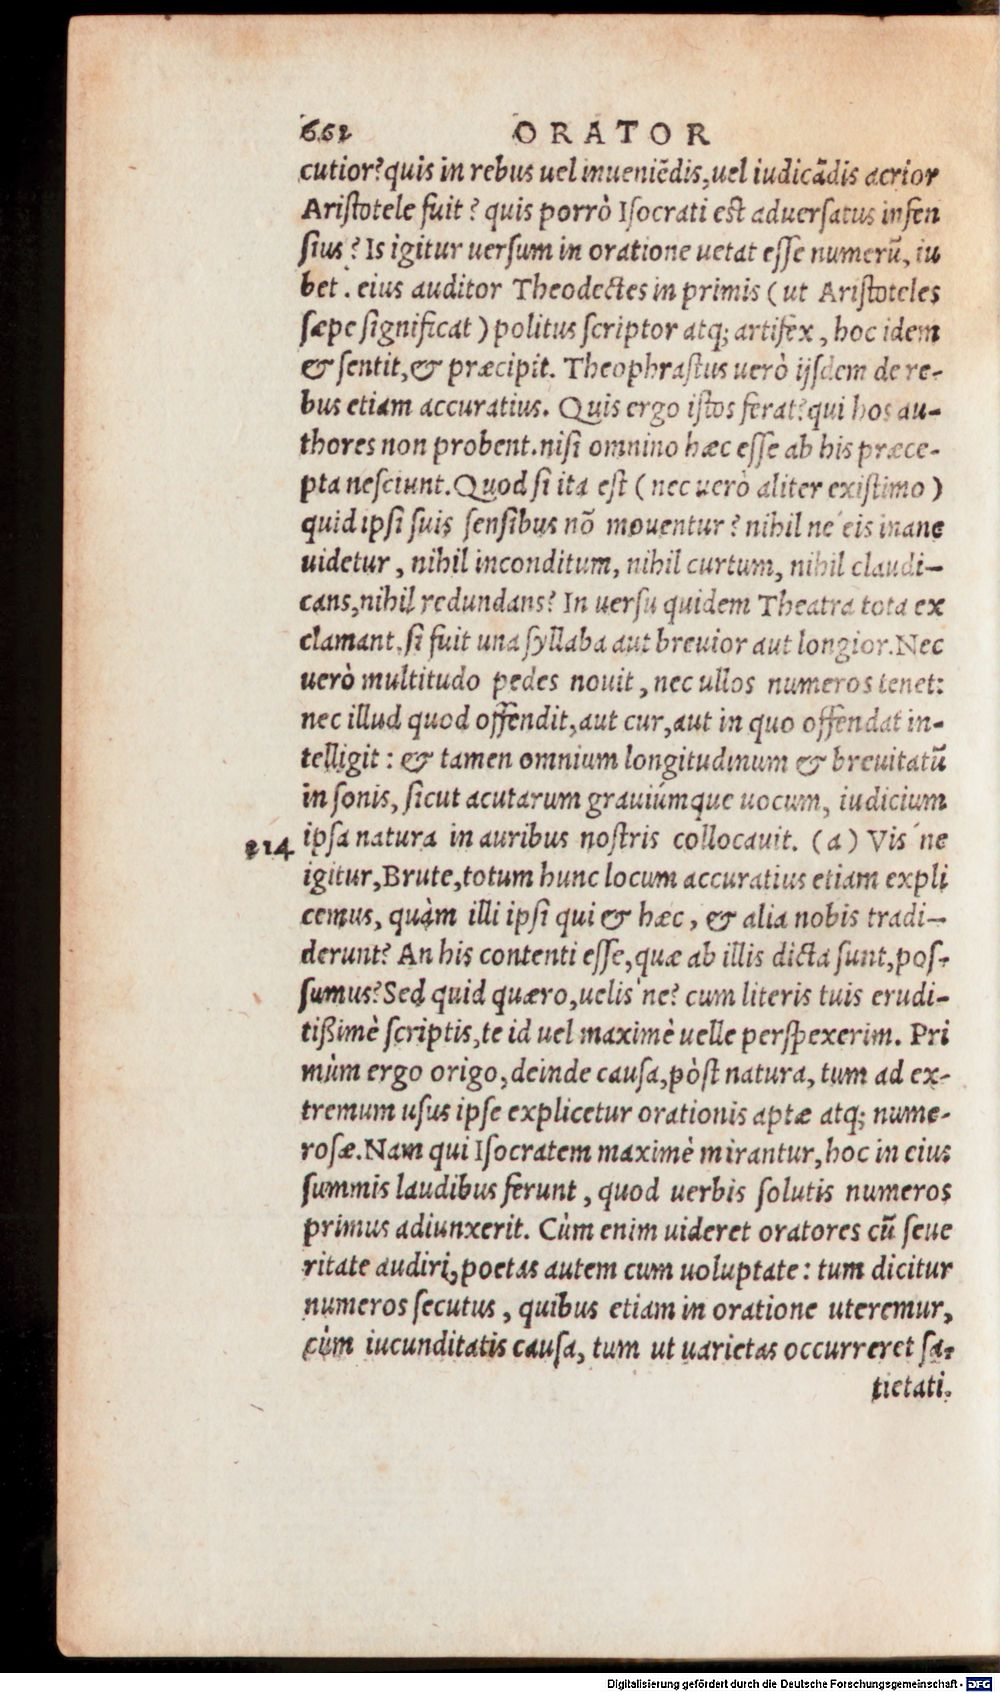 662 ORATOR
cutior? quis in rebus uel inueniēdis, uel iudicādis acrior
Aristotele fuit? quis porrò Isocrati est aduersatus infen
sius? Is igitur uersum in oratione uetat esse numerū, iu
bet. eius auditor Theodectes in primis (ut Aristoteles
sæpe significat) politus scriptor atq; artifex, hoc idem
& sentit, & præcipit. Theophrastus uerò ijsdem de re-
bus etiam accuratius. Quis ergo istos ferat? qui hos au-
thores non probent. nisi omnino hæc esse ab his præce-
pta nesciunt. Quod si ita est (nec uerò aliter existimo)
quid ipsi suis sensibus nō mouentur? nihil ne eis inane
uidetur, nihil inconditum, nihil curtum, nihil claudi-
cans, nihil redundans? In uersu quidem Theatra tota ex
clamant, si fuit una syllaba aut breuior aut longior. Nec
uerò multitudo pedes nouit, nec ullos numeros tenet:
nec illud quod offendit, aut cur, aut in quo offendat in-
telligit: & tamen omnium longitudinum & breuitatū
in sonis, sicut acutarum grauiúmque uocum, iudicium
ipsa natura in auribus nostris collocauit. (a) Vis'ne
214
igitur, Brute, totum hunc locum accuratius etiam expli
cemus, quàm illi ipsi qui & hæc, & alia nobis tradi-
derunt? An his contenti esse, quæ ab illis dicta sunt, pos-
sumus? Sed quid quæro, uelis'ne? cum literis tuis erudi-
tißimè scriptis, te id uel maximè uelle perspexerim. Pri
mùm ergo origo, deinde causa, pòst natura, tum ad ex-
tremum usus ipse explicetur orationis aptæ atq; nume-
rosæ. Nam qui Isocratem maximè mirantur, hoc in eius
summis laudibus ferunt, quod uerbis solutis numeros
primus adiunxerit. Cùm enim uideret oratores cū seue
ritate audiri, poetas autem cum uoluptate: tum dicitur
numeros secutus, quibus etiam in oratione uteremur,
cùm iucunditatis causa, tum ut uarietas occurreret sa-
tietati.
Digitalisierung gefördert durch die Deutsche Forschungsgemeinschaft - DFG